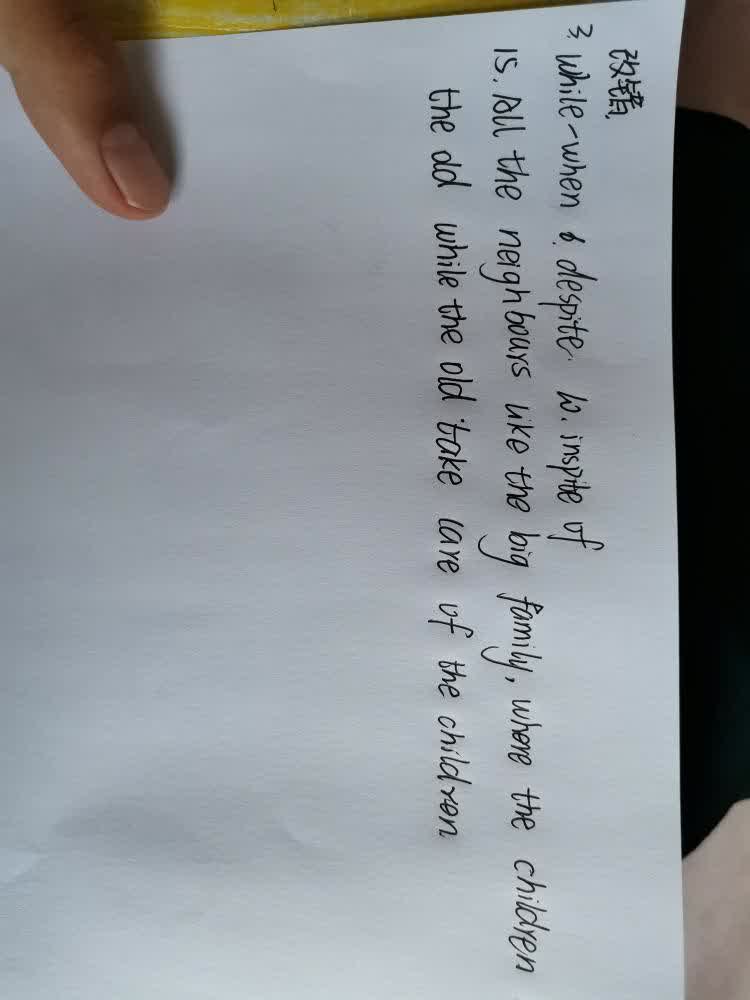 改错.
3. while-when 6. despite. 10. inspite of
15. All the neighbours like the big family, where the children
the dd while the old take care of the children